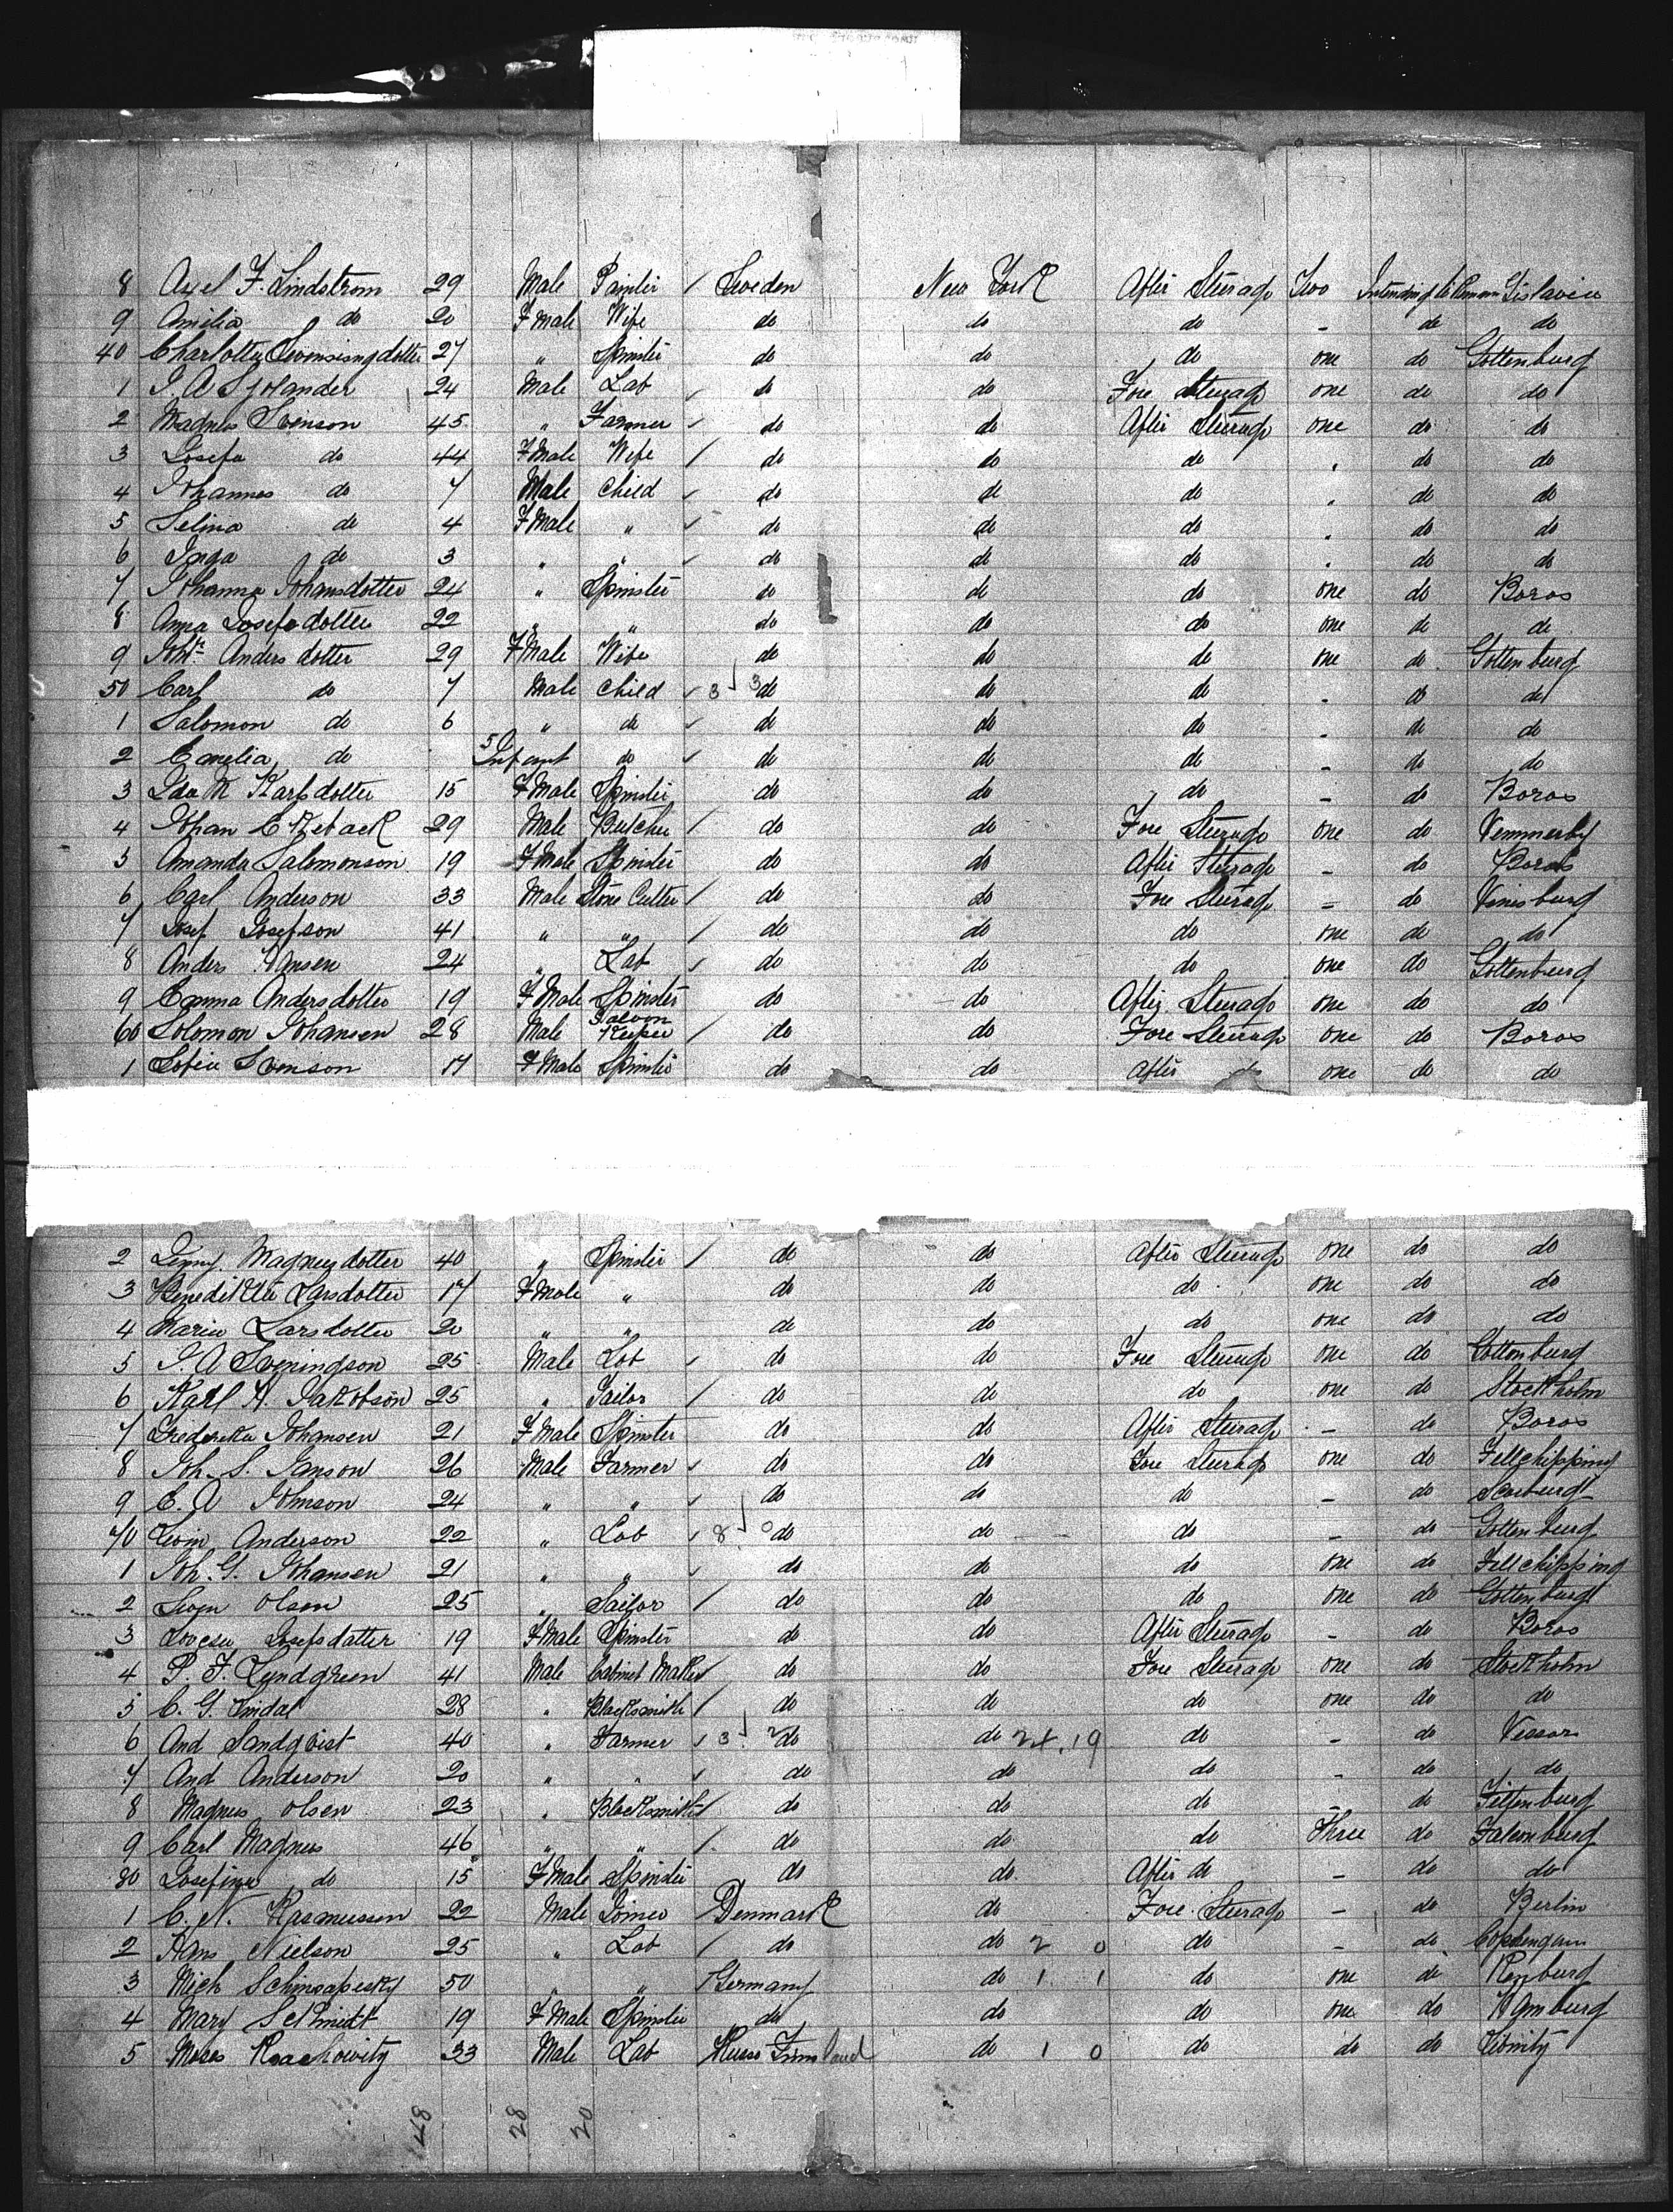 8 Axel F. Lindstrom 29 Male Painter / Sweden New York After Steerage Two Intending to Remain Gislavin
9 Amilia do 20 F Male Wife do do do - do do
40 Charlotte 27 " Spinster do do do one do Gottenburg
1 24 Male Lab / do do Fore Steerage one do do
2 Magnus Svenson 45 " Farmer do do After Steerage one do do
3 Josefa do 44 F Male Wife / do do do " do do
4 Johannes do 7 Male Child do do do " do do
5 Selina do 4 F Male " do do do " do do
6 Inga do 3 " " do do do " do do
7 Johanna Johansdotter 24 " Spinster do do do one do Boros
8 Anna Josefsdotter 22 " " do do do one do do
9 Andersdotter 29 F Male Wife do do do one do Gottenburg
50 Carl do 7 Male Child 3 3 do do do - do do
1 Salomon do 6 " do do do do - do do
2 Emelia do Infant do do do do - do do
3 Ida M Karlsdotter 15 F Male Spinster do do do - do Boros
4 Johan 29 Male Butcher / do do Fore Steerage one do Vemmerby
5 Amanda Salomonson 19 F Male Spinster do do After Steerage - do Boros
6 Carl Anderson 33 Male Stone Cutter / do do Fore Steerage - do Vinisburg
7 Josef Josefson 41 " " / do do do one do do
8 Anders Hansen 24 " Lab do do do one do Gottenburg
9 Emma Andersdotter 19 F Male Spinster do do After Steerage one do do
60 Solomon Johansen 28 Male Saloon Keeper / do do Fore Steerage one do Boros
1 Sofia Svenson 17 F Male Spinster do do After do one do do
2 Magnusdotter 40 " Spinster / do do After Steerage one do do
3 Benedikta Larsdotter 17 F Male " do do do one do do
4 Maria Larsdotter 20 " " do do do one do do
5 J. A Sveningson 25 Male Lab do do Fore Steerage one do Gottenburg
6 Karl A. Jakobson 25 " Tailor / do do do one do Stockholm
7 Frederika Johansen 21 F Male Spinster do do After Steerage - do Boros
8 Joh. S. Janson 26 Male Farmer do do Fore Steerage one do Fellchipping
9 C. A Johnson 24 " " do do do - do
70 Swin Anderson 22 " Lab 8 0 do do do - do Gottenburg
1 Joh. G. Johansen 21 " " do do do one do Fellchipping
2 Swen Olsen 25 " Sailor / do do do one do Gottenburg
3 Josefsdatter 19 F Male Spinster do do After Steerage - do Boros
4 P. F. Lundgreen 41 Male Cabinet Maker do do Fore Steerage one do Stockholm
5 C. G. Lindal 28 " Blacksmith / do do do one do do
6 And Sandqvist 40 " Farmer 3 2 do do 24.19 do - do Vessor
7 And Anderson 20 " " do do do - do do
8 Magnus Olsen 23 " Blacksmith / do do do - do
9 Carl Magnus 46 " " / do do do Three do Falconburg
80 Josefina do 15 F Male Spinster do do After do - do do
1 C. N. Rasmussen 22 Male Joiner / Denmark do Fore Steerage - do Berlin
2 Hans Nielson 25 " Lab / do do 2 0 do - do Cophengam
3 Mich 50 " " Germany do 1 1 do one do
4 Mary Schmidt 19 F Male Spinster do do do one do Hamburg
5 Moses Rachowitz 33 Male Lab Russ Finnland do 1 0 do do do
48 28 20